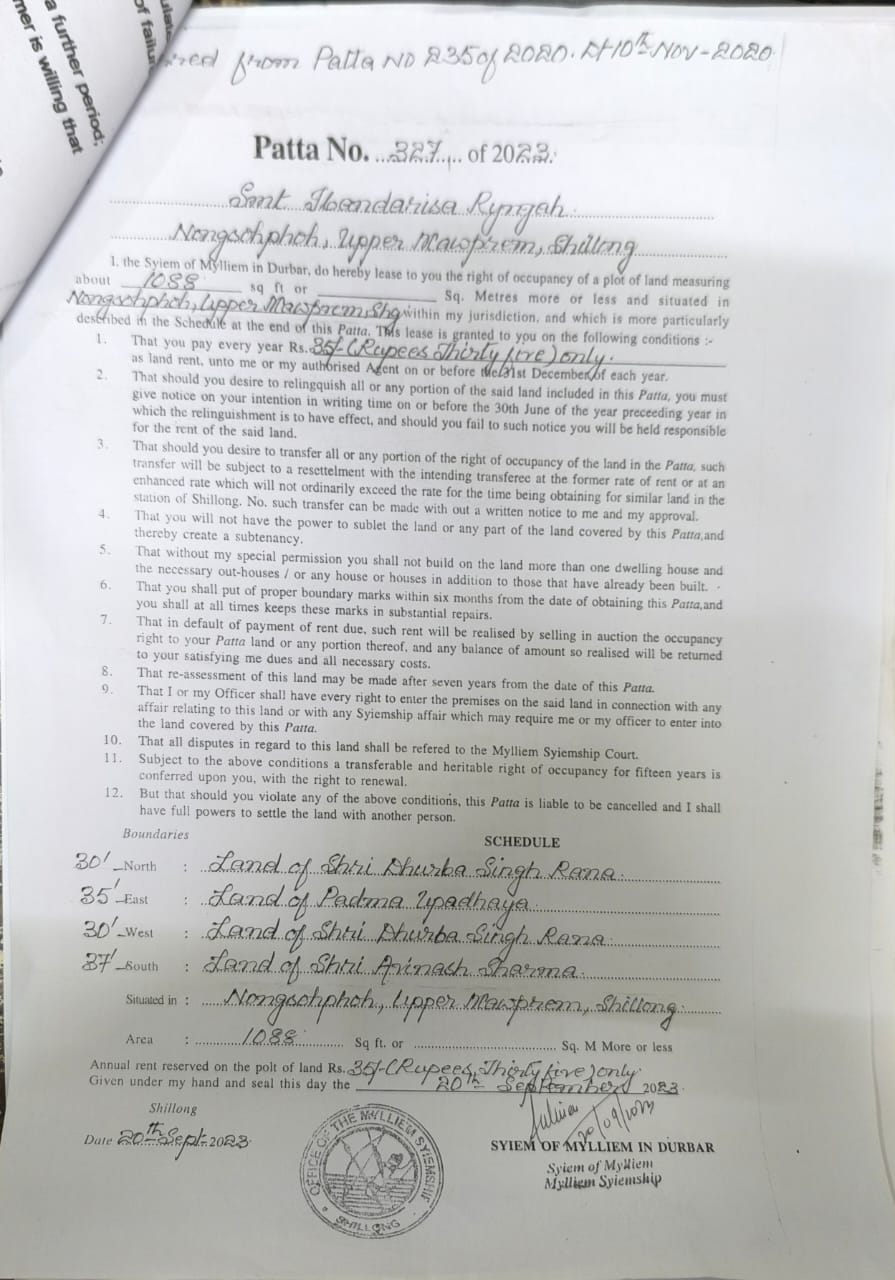 a further period;
mer is willing that
of failur
red from Patta NO 235 of 2020. Dt 10th-Nov-2020
Patta No. 327 of 2023.
Smt Ibandarisa Ryngah.
Nongsohphoh, Upper Mawprem, Shillong
I. the Syiem of Mylliem in Durbar, do hereby lease to you the right of occupancy of a plot of land measuring
about 1088 sq ft or Sq. Metres more or less and situated in
Nongsohphoh, Upper Mawprem, Shg within my jurisdiction, and which is more particularly
described in the Schedule at the end of this Patta. This lease is granted to you on the following conditions :-
1. That you pay every year Rs. 35/- (Rupees Thirty five) only.
as land rent, unto me or my authorised Agent on or before the 31st December of each year.
2. That should you desire to relingquish all or any portion of the said land included in this Patta, you must
give notice on your intention in writing time on or before the 30th June of the year preceeding year in
which the relinguishment is to have effect, and should you fail to such notice you will be held responsible
for the rent of the said land.
3. That should you desire to transfer all or any portion of the right of occupancy of the land in the Patta, such
transfer will be subject to a resettelment with the intending transferee at the former rate of rent or at an
enhanced rate which will not ordinarily exceed the rate for the time being obtaining for similar land in the
station of Shillong. No. such transfer can be made with out a written notice to me and my approval.
4. That you will not have the power to sublet the land or any part of the land covered by this Patta, and
thereby create a subtenancy.
5. That without my special permission you shall not build on the land more than one dwelling house and
the necessary out-houses / or any house or houses in addition to those that have already been built.
6. That you shall put of proper boundary marks within six months from the date of obtaining this Patta, and
you shall at all times keeps these marks in substantial repairs.
7. That in default of payment of rent due, such rent will be realised by selling in auction the occupancy
right to your Patta land or any portion thereof, and any balance of amount so realised will be returned
to your satisfying me dues and all necessary costs.
8. That re-assessment of this land may be made after seven years from the date of this Patta.
9. That I or my Officer shall have every right to enter the premises on the said land in connection with any
affair relating to this land or with any Syiemship affair which may require me or my officer to enter into
the land covered by this Patta.
10. That all disputes in regard to this land shall be refered to the Mylliem Syiemship Court.
11. Subject to the above conditions a transferable and heritable right of occupancy for fifteen years is
conferred upon you, with the right to renewal.
12. But that should you violate any of the above conditions, this Patta is liable to be cancelled and I shall
have full powers to settle the land with another person.
Boundaries
SCHEDULE
30' North : Land of Shri Dhurba Singh Rana.
35' East : Land of Padma Upadhaya.
30' West : Land of Shri Dhurba Singh Rana.
37' South : Land of Shri Avinash Sharma.
Situated in : Nongsohphoh, Upper Mawprem, Shillong.
Area : 1088 Sq ft. or Sq. M More or less
Annual rent reserved on the polt of land Rs. 35/- (Rupees, Thirty five) only.
Given under my hand and seal this day the 20th September, 2023.
Shillong
Date 20th Sept. 2023.
20/09/2023
SYIEM OF MYLLIEM IN DURBAR
Syiem of Mylliem
Mylliem Syiemship
OFFICE OF THE MYLLIEM SYIEMSHIP
SHILLONG